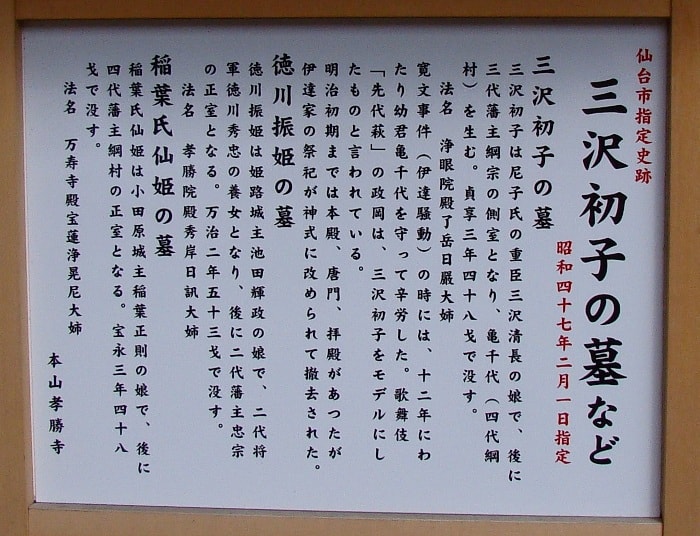 仙台市指定史跡
三沢初子の墓など
昭和四十七年二月一日指定
三沢初子の墓
三沢初子は尼子氏の重臣三沢清長の娘で、後に
三代藩主綱宗の側室となり、亀千代（四代綱
村）を生む。貞享三年四十八才で没す。
法名　浄眼院殿了岳日嚴大姉
寛文事件（伊達騒動）の時には、十二年にわ
たり幼君亀千代を守って辛労した。歌舞伎
「先代萩」の政岡は、三沢初子をモデルにし
たものと言われている。
明治初期までは本殿、唐門、拝殿があつたが
伊達家の祭祀が神式に改められて撤去された。
徳川振姫の墓
徳川振姫は姫路城主池田輝政の娘で、二代将
軍徳川秀忠の養女となり、後に二代藩主忠宗
の正室となる。万治二年五十三才で没す。
法名　孝勝院殿秀岸日訊大姉
稲葉氏仙姫の墓
稲葉氏仙姫は小田原城主稲葉正則の娘で、後に
四代藩主綱村の正室となる。宝永三年四十八
才で没す。
法名　万寿寺殿宝蓮浄晃尼大姉
本山孝勝寺